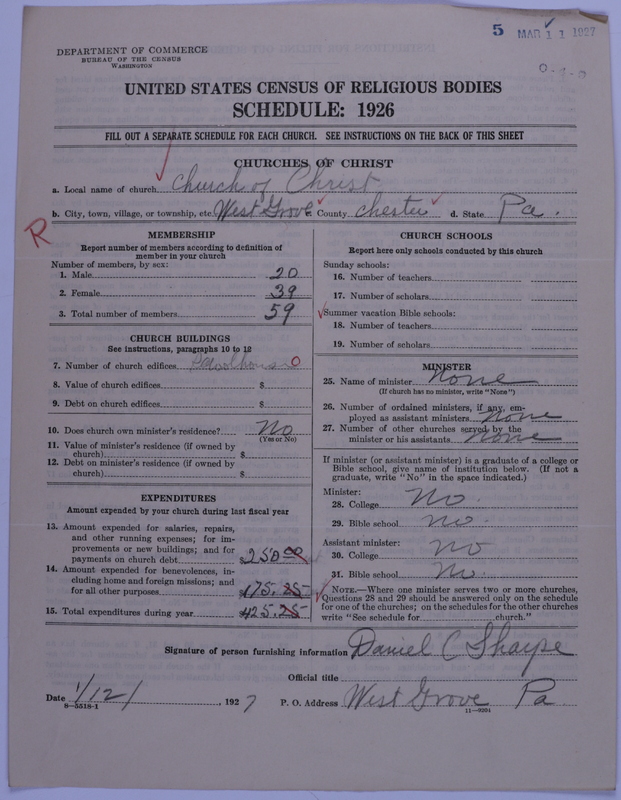 5 MAR 11 1927
DEPARTMENT OF COMMERCE
BUREAU OF THE CENSUS
WASHINGTON
UNITED STATES CENSUS OF RELIGIOUS BODIES
SCHEDULE: 1926
FILL OUT A SEPARATE SCHEDULE FOR EACH CHURCH. SEE INSTRUCTIONS ON THE BACK OF THIS SHEET
CHURCHES OF CHRIST
a. Local name of church Church of Christ
b. City, town, village, or township, etc. West Grove c. County Chester d. State Pa.
R
MEMBERSHIP
Report number of members according to definition of
member in your church
Number of members, by sex:
1. Male 20
2. Female 39
3. Total number of members 59
CHURCH BUILDINGS
See instructions, paragraphs 10 to 12
7. Number of church edifices Schoolhouse 0
8. Value of church edifices $
9. Debt on church edifices $
10. Does church own minister's residence? No
(Yes or No)
11. Value of minister's residence (if owned by
church) $
12. Debt on minister's residence (if owned by
church) $
EXPENDITURES
Amount expended by your church during last fiscal year
13. Amount expended for salaries, repairs,
and other running expenses; for im-
provements or new buildings; and for
payments on church debt $250.00
14. Amount expended for benevolences, in-
cluding home and foreign missions; and
for all other purposes $175.25
15. Total expenditures during year $425.25
CHURCH SCHOOLS
Report here only schools conducted by this church
Sunday schools:
16. Number of teachers
17. Number of scholars
Summer vacation Bible schools:
18. Number of teachers
19. Number of scholars
MINISTER
25. Name of minister None
(If church has no minister, write "None")
26. Number of ordained ministers, if any, em-
ployed as assistant ministers None
27. Number of other churches served by the
minister or his assistants None
If minister (or assistant minister) is a graduate of a college or
Bible school, give name of institution below. (If not a
graduate, write "No" in the space indicated.)
Minister:
28. College No
29. Bible school No
Assistant minister:
30. College No
31. Bible school No.
NOTE.—Where one minister serves two or more churches,
Questions 28 and 29 should be answered only on the schedule
for one of the churches; on the schedules for the other churches
write "See schedule for church."
Signature of person furnishing information Daniel C Sharpe
Official title
Date 1/12/, 1927 P. O. Address West Grove Pa
8—5518-1 11—9391